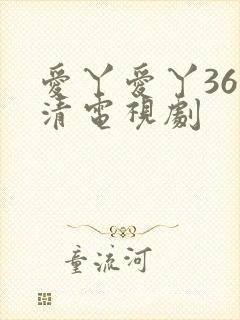 愛丫愛丫36
清電視劇
童流河